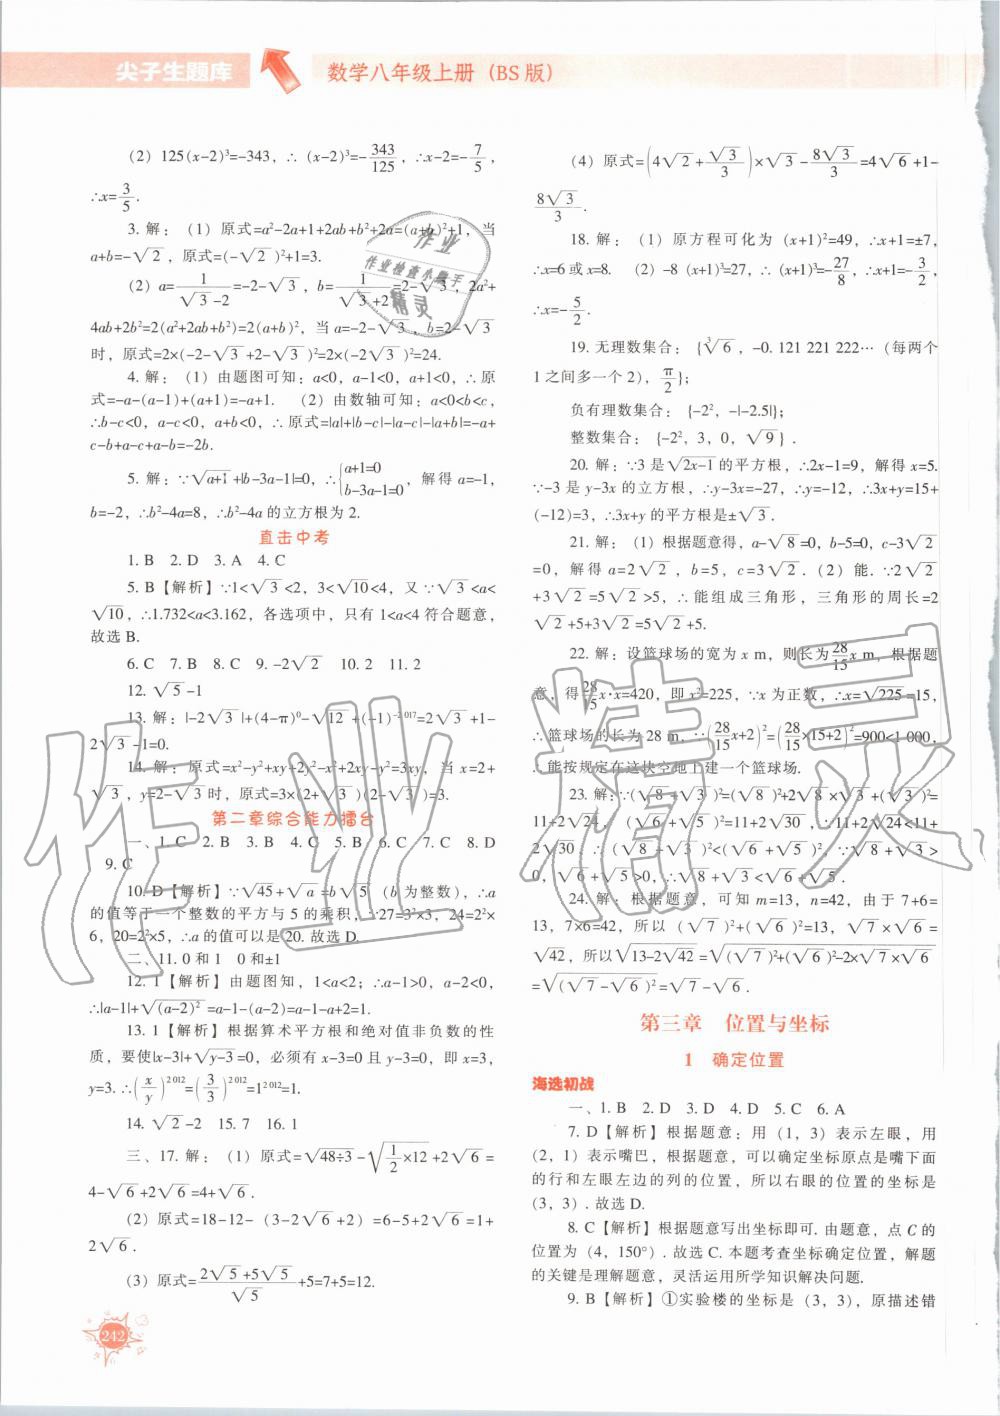 尖子生题库
数学八年级上册（BS版）
(2) 125(x-2)³=-343，∴ (x-2)³=-343/125，∴x-2=-7/5，
∴x=3/5.
3. 解：(1) 原式=a²-2a+1+2ab+b²+2a=(a+b)²+1，当
a+b=-√2，原式=(-√2)²+1=3.
(2) a=1/(√3-2)=-2-√3，b=1/(√3+2)=2-√3，2a²+
4ab+2b²=2(a²+2ab+b²)=2(a+b)²，当a=-2-√3，b=2-√3
时，原式=2×(-2-√3+2-√3)²=2×(-2√3)²=24.
4. 解：(1) 由题图可知：a<0，a-1<0，a+1<0，∴原
式=-a-(a-1)+(a+1)=-a+1. (2) 由数轴可知：a<0<b<c，
∴b-c<0，a-c<0，a+b<0，∴原式=|a|+|b-c|-|a-c|-|a+b|=-a+
c-b+a-c+a-b=-2b.
5. 解：∵√(a+1)+|b-3a-1|=0，∴{a+1=0 b-3a-1=0，解得a=-1，
b=-2，∴b²-4a=8，∴b²-4a的立方根为2.
直击中考
1. B 2. D 3. A 4. C
5. B【解析】∵1<√3<2，3<√10<4，又∵√3<a<
√10，∴1.732<a<3.162，各选项中，只有1<a<4符合题意，
故选B.
6. C 7. B 8. C 9. -2√2 10. 2 11. 2
12. √5-1
13. 解：|-2√3|+(4-π)⁰-√12+(-1)⁻²⁰¹⁷=2√3+1-
2√3-1=0.
14. 解：原式=x²-y²+xy+2y²-x²+2xy-y²=3xy，当x=2+
√3，y=2-√3时，原式=3×(2+√3)(2-√3)=3.
第二章综合能力擂台
一、1. C 2. B 3. B 4. C 5. B 6. C 7. C 8. D
9. C
10. D【解析】∵√45+√a=b√5（b为整数），∴a
的值等于一个整数的平方与5的乘积，∵27=3²×3，24=2²×
6，20=2²×5，∴a的值可以是20. 故选D.
二、11. 0和1 0和±1
12. 1【解析】由题图知，1<a<2；∴a-1>0，a-2<0，
∴|a-1|+√(a-2)²=a-1-(a-2)=a-1-a+2=1.
13. 1【解析】根据算术平方根和绝对值非负数的性
质，要使|x-3|+√(y-3)=0，必须有x-3=0且y-3=0，即x=3，
y=3. ∴(x/y)²⁰¹²=(3/3)²⁰¹²=1²⁰¹²=1.
14. √2-2 15. 7 16. 1
三、17. 解：(1) 原式=√(48÷3)-√(1/2×12)+2√6=
4-√6+2√6=4+√6.
(2) 原式=18-12-（3-2√6+2）=6-5+2√6=1+
2√6.
(3) 原式=(2√5+5√5)/√5+5=7+5=12.
242
(4) 原式=(4√2+√3/3)×√3-8√3/3=4√6+1-
8√3/3.
18. 解：(1) 原方程可化为 (x+1)²=49，∴x+1=±7，
∴x=6或x=8. (2) -8(x+1)³=27，∴(x+1)³=-27/8，∴x+1=-3/2，
∴x=-5/2.
19. 无理数集合：{³√6，-0. 121 221 222…（每两个
1之间多一个2），π/2}；
负有理数集合：{-2²，-|-2.5|}；
整数集合：{-2²，3，0，√9}.
20. 解：∵3是√(2x-1)的平方根，∴2x-1=9，解得x=5.
∵-3是y-3x的立方根，∴y-3x=-27，∴y=-12，∴3x+y=15+
(-12)=3，∴3x+y的平方根是±√3.
21. 解：(1) 根据题意得，a-√8=0，b-5=0，c-3√2
=0，解得a=2√2，b=5，c=3√2. (2) 能. ∵2√2
+3√2=5√2>5，∴能组成三角形，三角形的周长=2
√2+5+3√2=5√2+5.
22. 解：设篮球场的宽为x m，则长为28/15x m，根据题
意，得28/15x·x=420，即x²=225，∵x为正数，∴x=√225=15，
∴篮球场的长为28 m，∵(28/15x+2)²=(28/15×15+2)²=900<1 000，
∴能按规定在这块空地上建一个篮球场.
23. 解：∵(√8+√3)²=(√8)²+2√8×√3+(√3)²=
11+2√24，(√6+√5)²=11+2√30，∵11+2√24<11+
2√30，∴(√8+√3)²<(√6+√5)²，∵√8+√3>
0，√6+√5>0，∴√8+√3<√6+√5.
24. 解：根据题意，可知m=13，n=42，由于7+6=
13，7×6=42，所以(√7)²+(√6)²=13，√7×√6=
√42，所以√(13-2√42)=√((√7)²+(√6)²-2×√7×√6)
=√(√7-√6)²=√7-√6.
第三章 位置与坐标
1 确定位置
海选初战
一、1. B 2. D 3. D 4. D 5. C 6. A
7. D【解析】根据题意：用（1，3）表示左眼，用
（2，1）表示嘴巴，根据题意，可以确定坐标原点是嘴下面
的行和左眼左边的列的位置，所以右眼的位置的坐标是
（3，3）. 故选D.
8. C【解析】根据题意写出坐标即可. 由题意，点C的
位置为（4，150°）. 故选C. 本题考查坐标确定位置，解题
的关键是理解题意，灵活运用所学知识解决问题.
9. B【解析】①实验楼的坐标是（3，3），原描述错
作业
作业检查小帮手
精灵
作业精灵